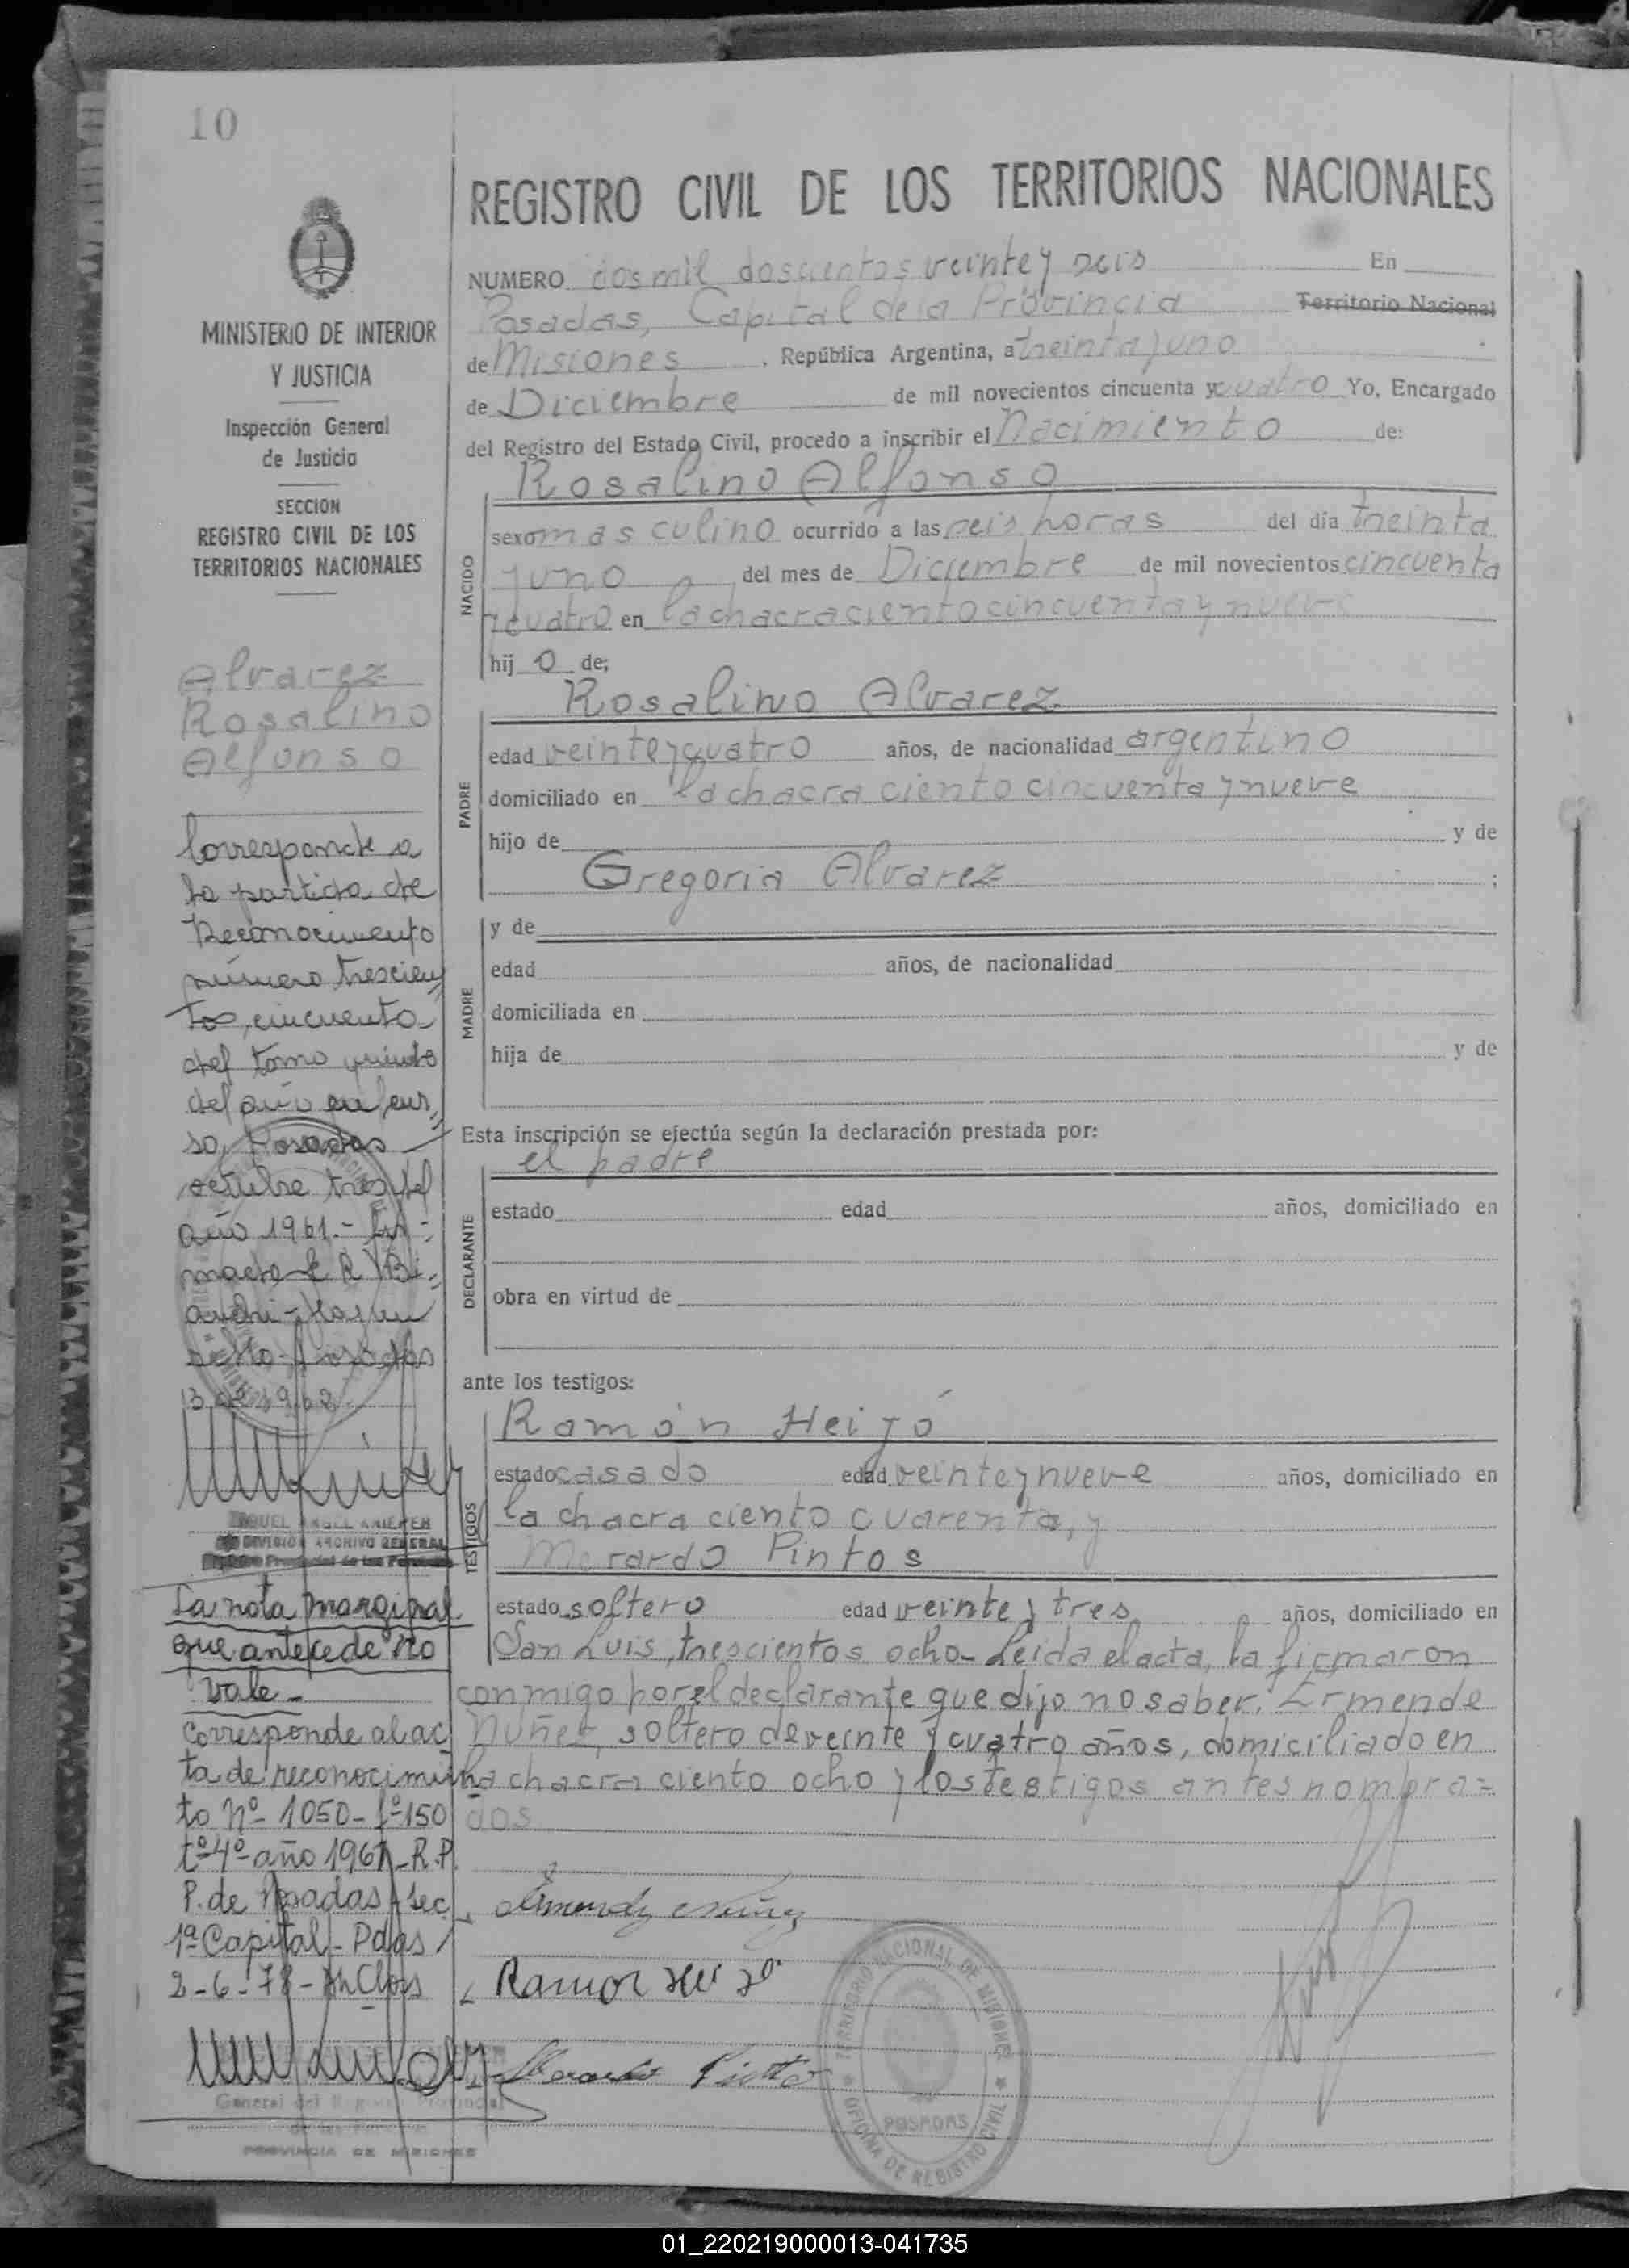 10
REGISTRO CIVIL DE LOS TERRITORIOS NACIONALES
NUMERO dos mil doscientos veinte y seis En
Posadas, Capital de la Provincia Territorio Nacional
de Misiones, República Argentina, a treinta y uno
de Diciembre de mil novecientos cincuenta y cuatro Yo, Encargado
del Registro del Estado Civil, procedo a inscribir el Nacimiento de:
MINISTERIO DE INTERIOR
Y JUSTICIA
Inspección General
de Justicia
SECCION
REGISTRO CIVIL DE LOS
TERRITORIOS NACIONALES
Alvarez
Rosalino
Alfonso
Corresponde a
la partida de
Reconocimiento
número trescien
tos, cincuenta
del tomo quinto
del año en cur
so, Posadas
octubre tres del
año 1961.-
La nota marginal
que antecede no
vale -
Corresponde al ac
ta de reconocimien
to nº 1050 - fº 150
tº 4º año 1961 - R.P.
P. de Posadas - Sec.
1ª Capital - Pdas
2-6-78 -
General del Registro Provincial
PROVINCIA DE MISIONES
NACIDO
Rosalino Alfonso
sexo masculino ocurrido a las seis horas del día treinta
y uno del mes de Diciembre de mil novecientos cincuenta
y cuatro en la chacra ciento cincuenta y nueve
hij o de;
PADRE
Rosalino Alvarez
edad veinte y cuatro años, de nacionalidad argentino
domiciliado en la chacra ciento cincuenta y nueve
hijo de y de
Gregoria Alvarez ;
MADRE
y de
edad años, de nacionalidad
domiciliada en
hija de y de
Esta inscripción se efectúa según la declaración prestada por:
DECLARANTE
el padre
estado edad años, domiciliado en
obra en virtud de
ante los testigos:
TESTIGOS
Ramón Heijó
estado casado edad veinte y nueve años, domiciliado en
la chacra ciento cuarenta, y
Merardo Pintos
estado soltero edad veinte y tres años, domiciliado en
San Luis, trescientos ocho - Leida el acta, la firmaron
conmigo por el declarante que dijo no saber. Ermende
Nuñez, soltero de veinte y cuatro años, domiciliado en
la chacra ciento ocho y los testigos antes nombra=
dos
TERRITORIO NACIONAL DE MISIONES
POSADAS
OFICINA DE REGISTRO CIVIL
01_220219000013-041735